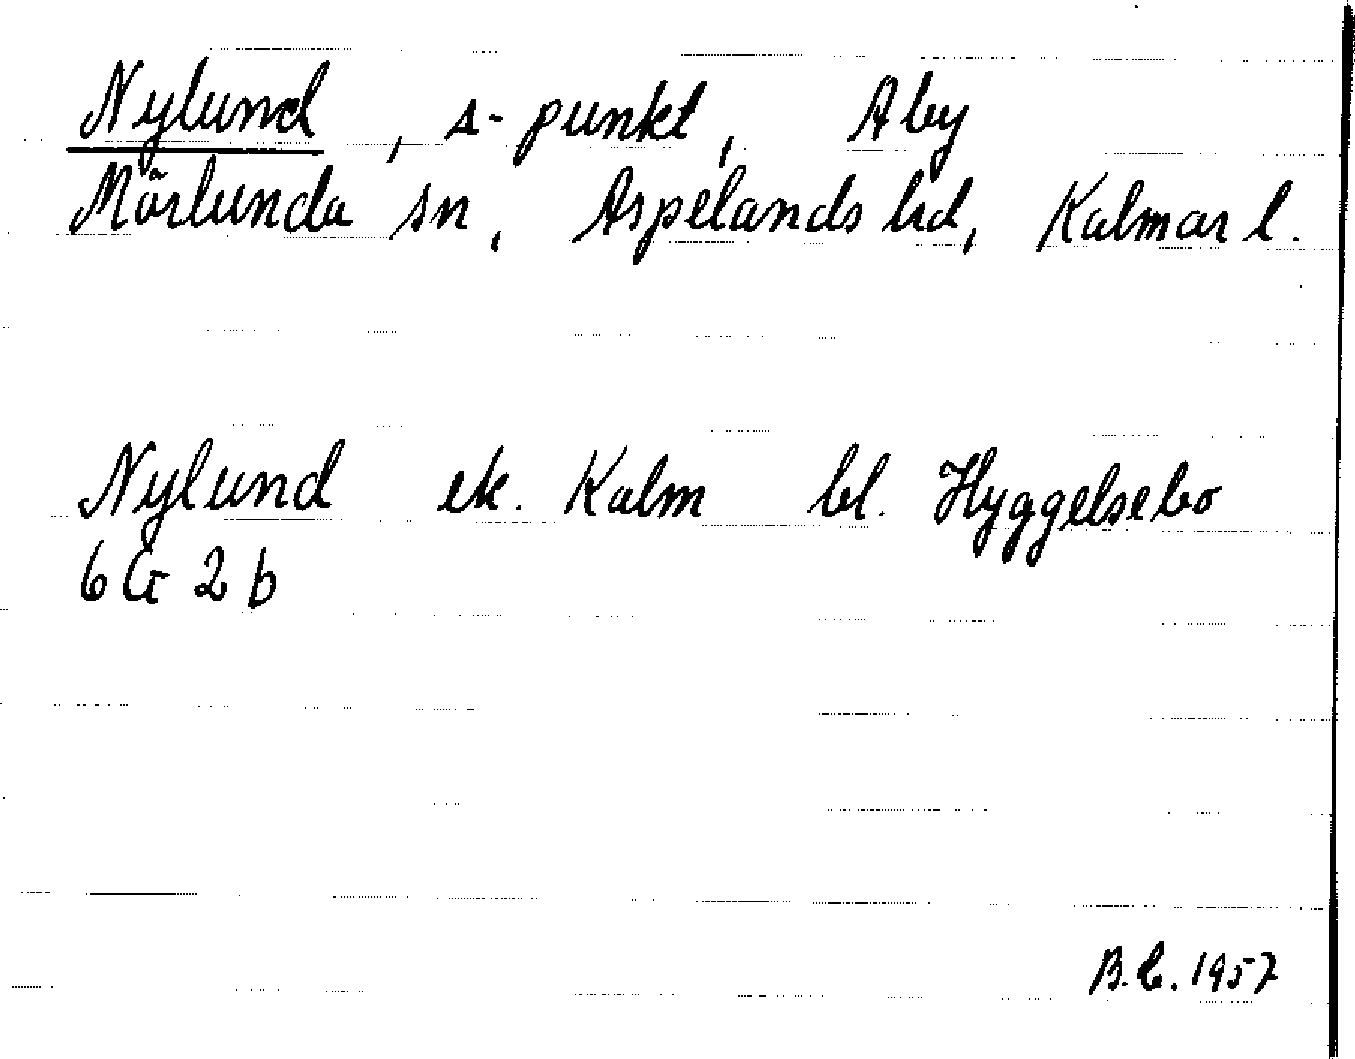 Nylund, s-punkt, Åby
Mörlunda sn, Aspelands hd, Kalmar l.
Nylund ek. Kalm bl. Hyggelsebo
6 G 2 b
B.C. 1957